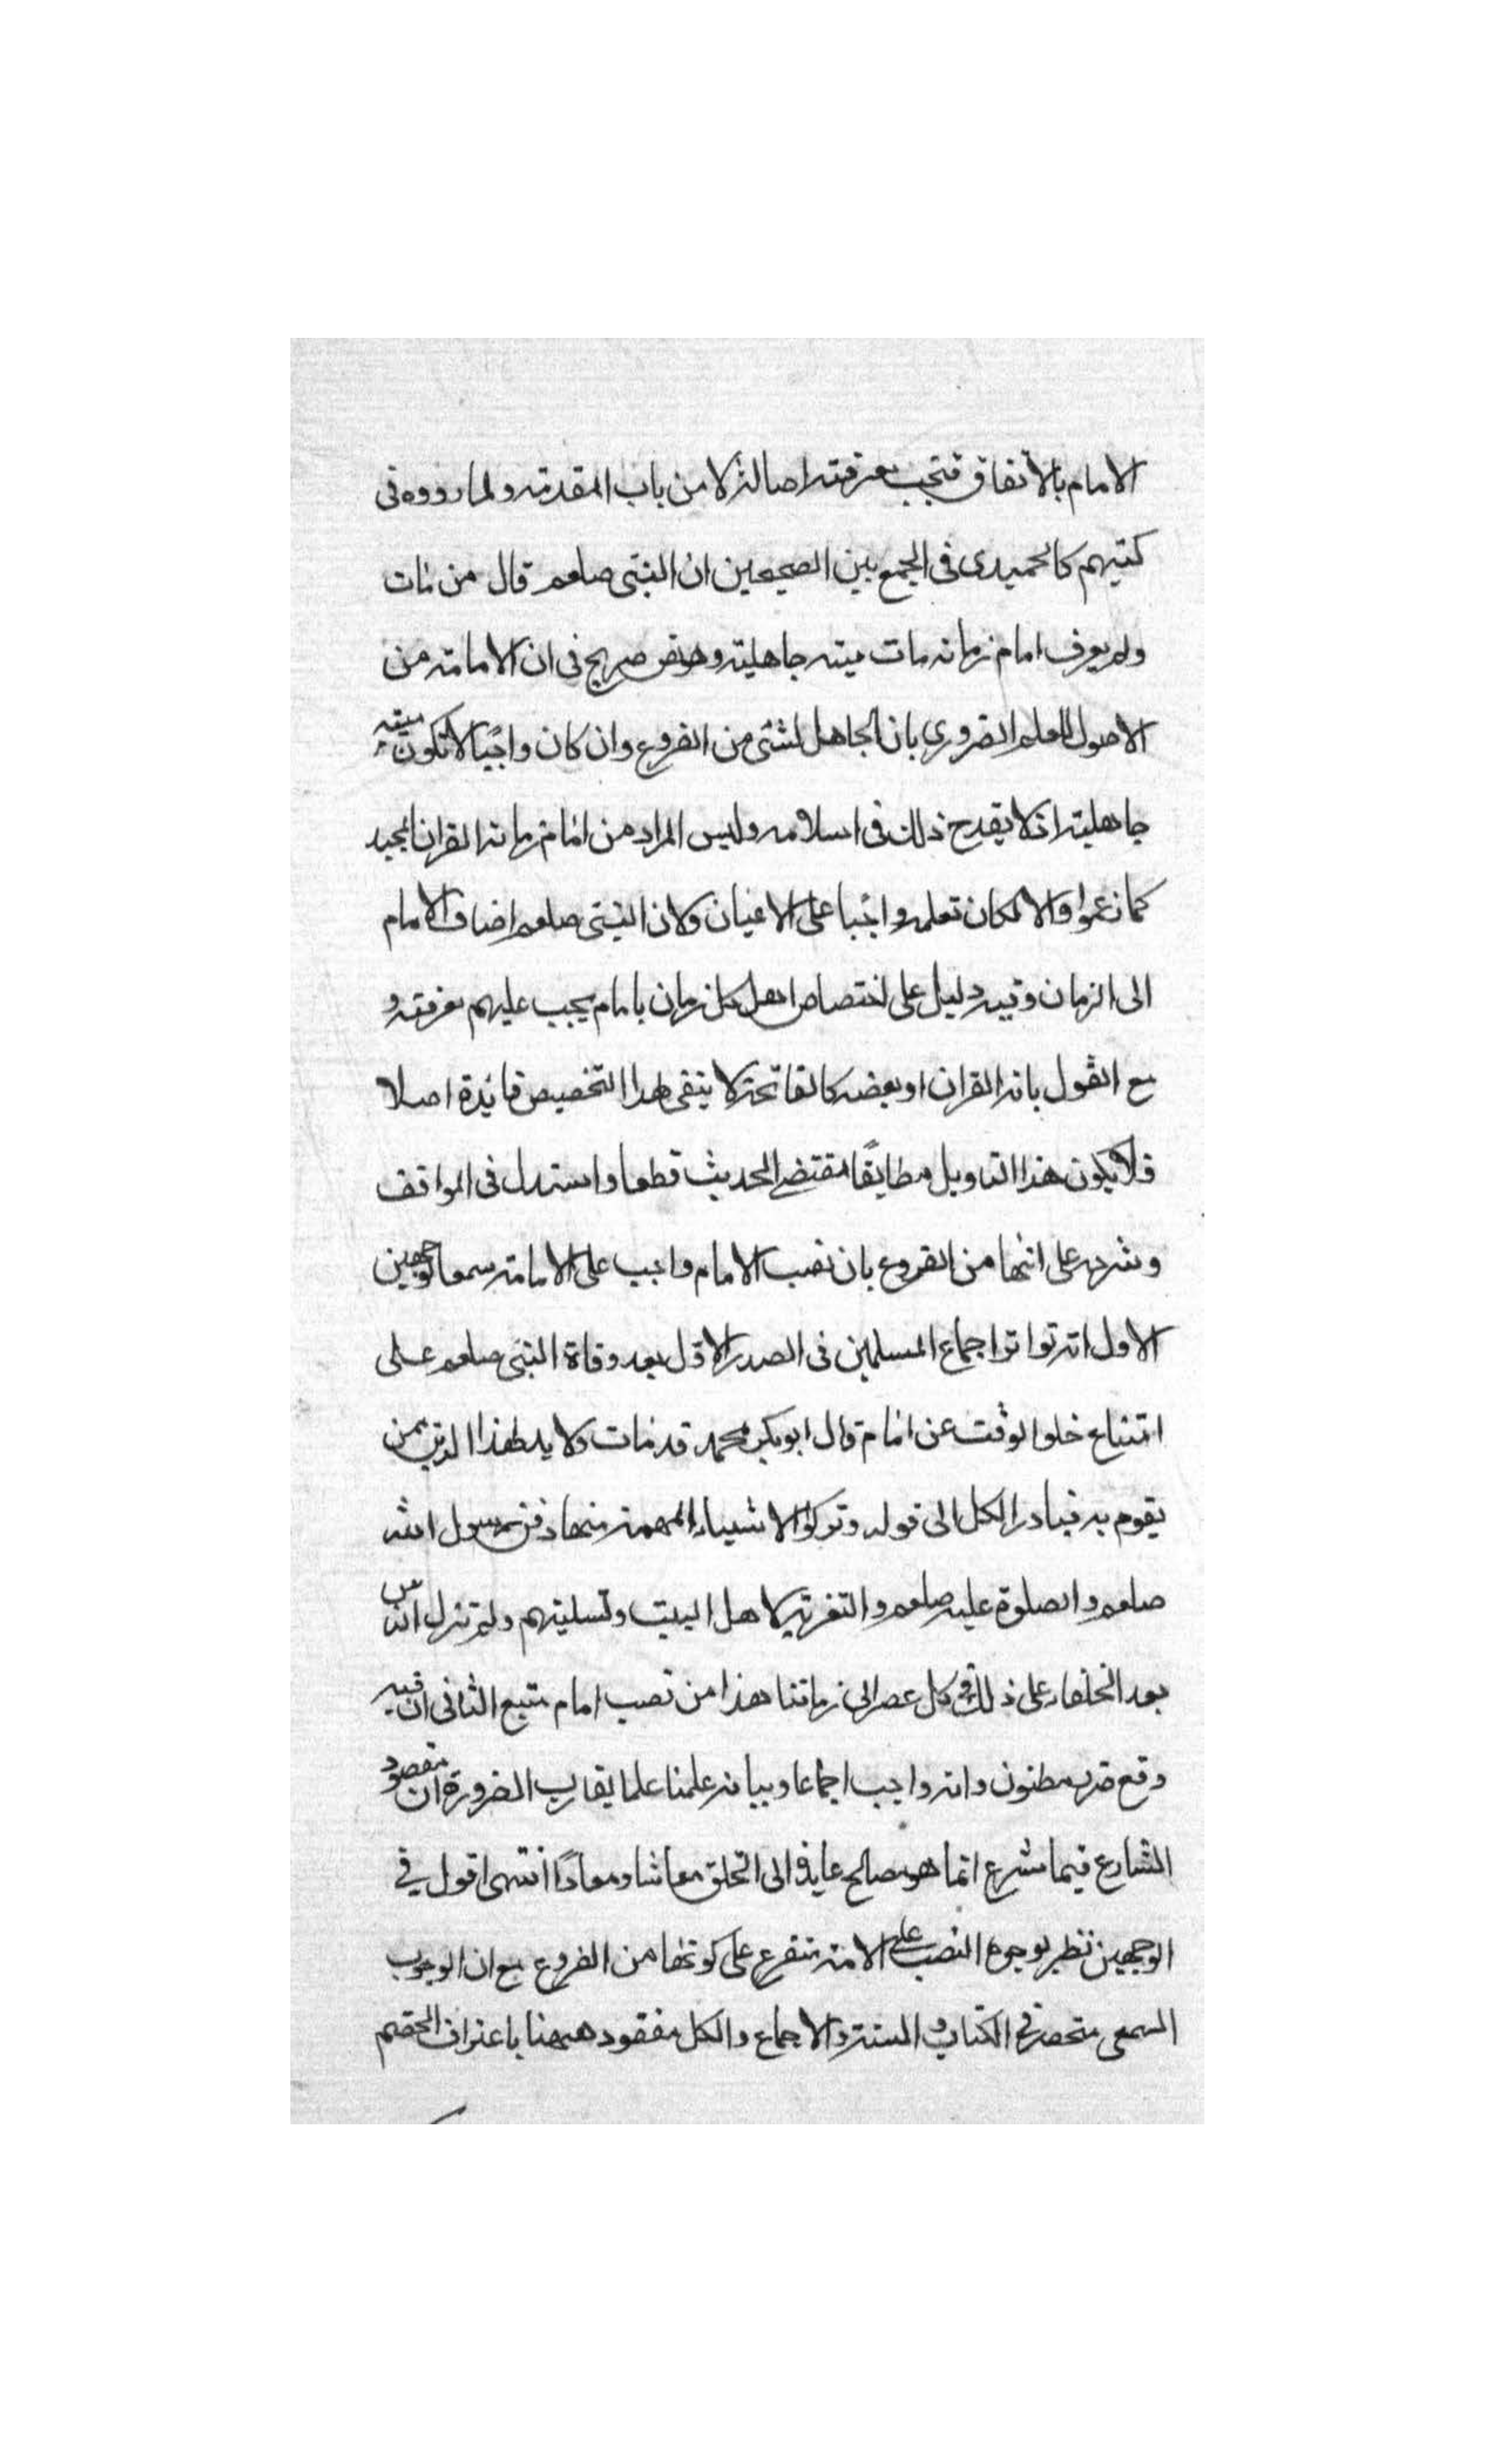 الامام بالاتفاق فتجب معرفته اصالة لا من باب المقدمة ولما رووه فى
كتبهم كالحميدى فى الجمع بين الصحيحين ان النبى صلعم قال من مات
ولم يعرف امام زمانه مات ميته جاهلية وهو نص صريح فى ان الامامة من
الاصول للعلم الضرورى بان الجاهل لشئ من الفروع وان كان واجبا لا تكون ميته
جاهلية اذ لا يقدح ذلك فى اسلامه وليس المراد من امام زمانه القران المجيد
كما زعموا والا لكان تعلمه واجبا على الاعيان ولان النبى صلعم اضاف الامام
الى الزمان وفيه دليل على اختصاص اهل كل زمان بامام يجب عليهم معرفته و
مع القول بانه القران او بعضه كالفاتحة لا يبقى لهذا التخصيص فائدة اصلا
فلا يكون هذا التاويل مطابقا لمقتضى الحديث قطعا واستدل فى المواقف
وشرحه على انها من الفروع بان نصب الامام واجب على الامامة سمعا لوجهين
الاول انه تواتر اجماع المسلمين فى الصدر الاول بعد وفاة النبى صلعم على
امتناع خلو الوقت عن امام قال ابو بكر محمد قد مات ولا بد لهذا الدين ممن
يقوم به فبادر الكل الى قوله وتركوا الاشياء المهمة منها دفن رسول الله
صلعم والصلوة عليه صلعم والتعزية لاهل البيت وتسليتهم ولم تزل الناس
بعد الخلفاء على ذلك فى كل عصر الى زماننا هذا من نصب امام متبع الثانى ان فيه
دفع ضرر مظنون وانه واجب اجماعا وبيانه علمنا علما يقارب الضرورة ان مقصود
الشارع فيما شرع انما هو مصالح عايدة الى الخلق معاشا ومعادا انتهى اقول فى
الوجهين نظر لوجوه النصب على الامة متفرع على كونها من الفروع مع ان الوجوب
السمعى منحصر فى الكتاب و السنة والاجماع والكل مفقود ههنا باعتراف الخصم